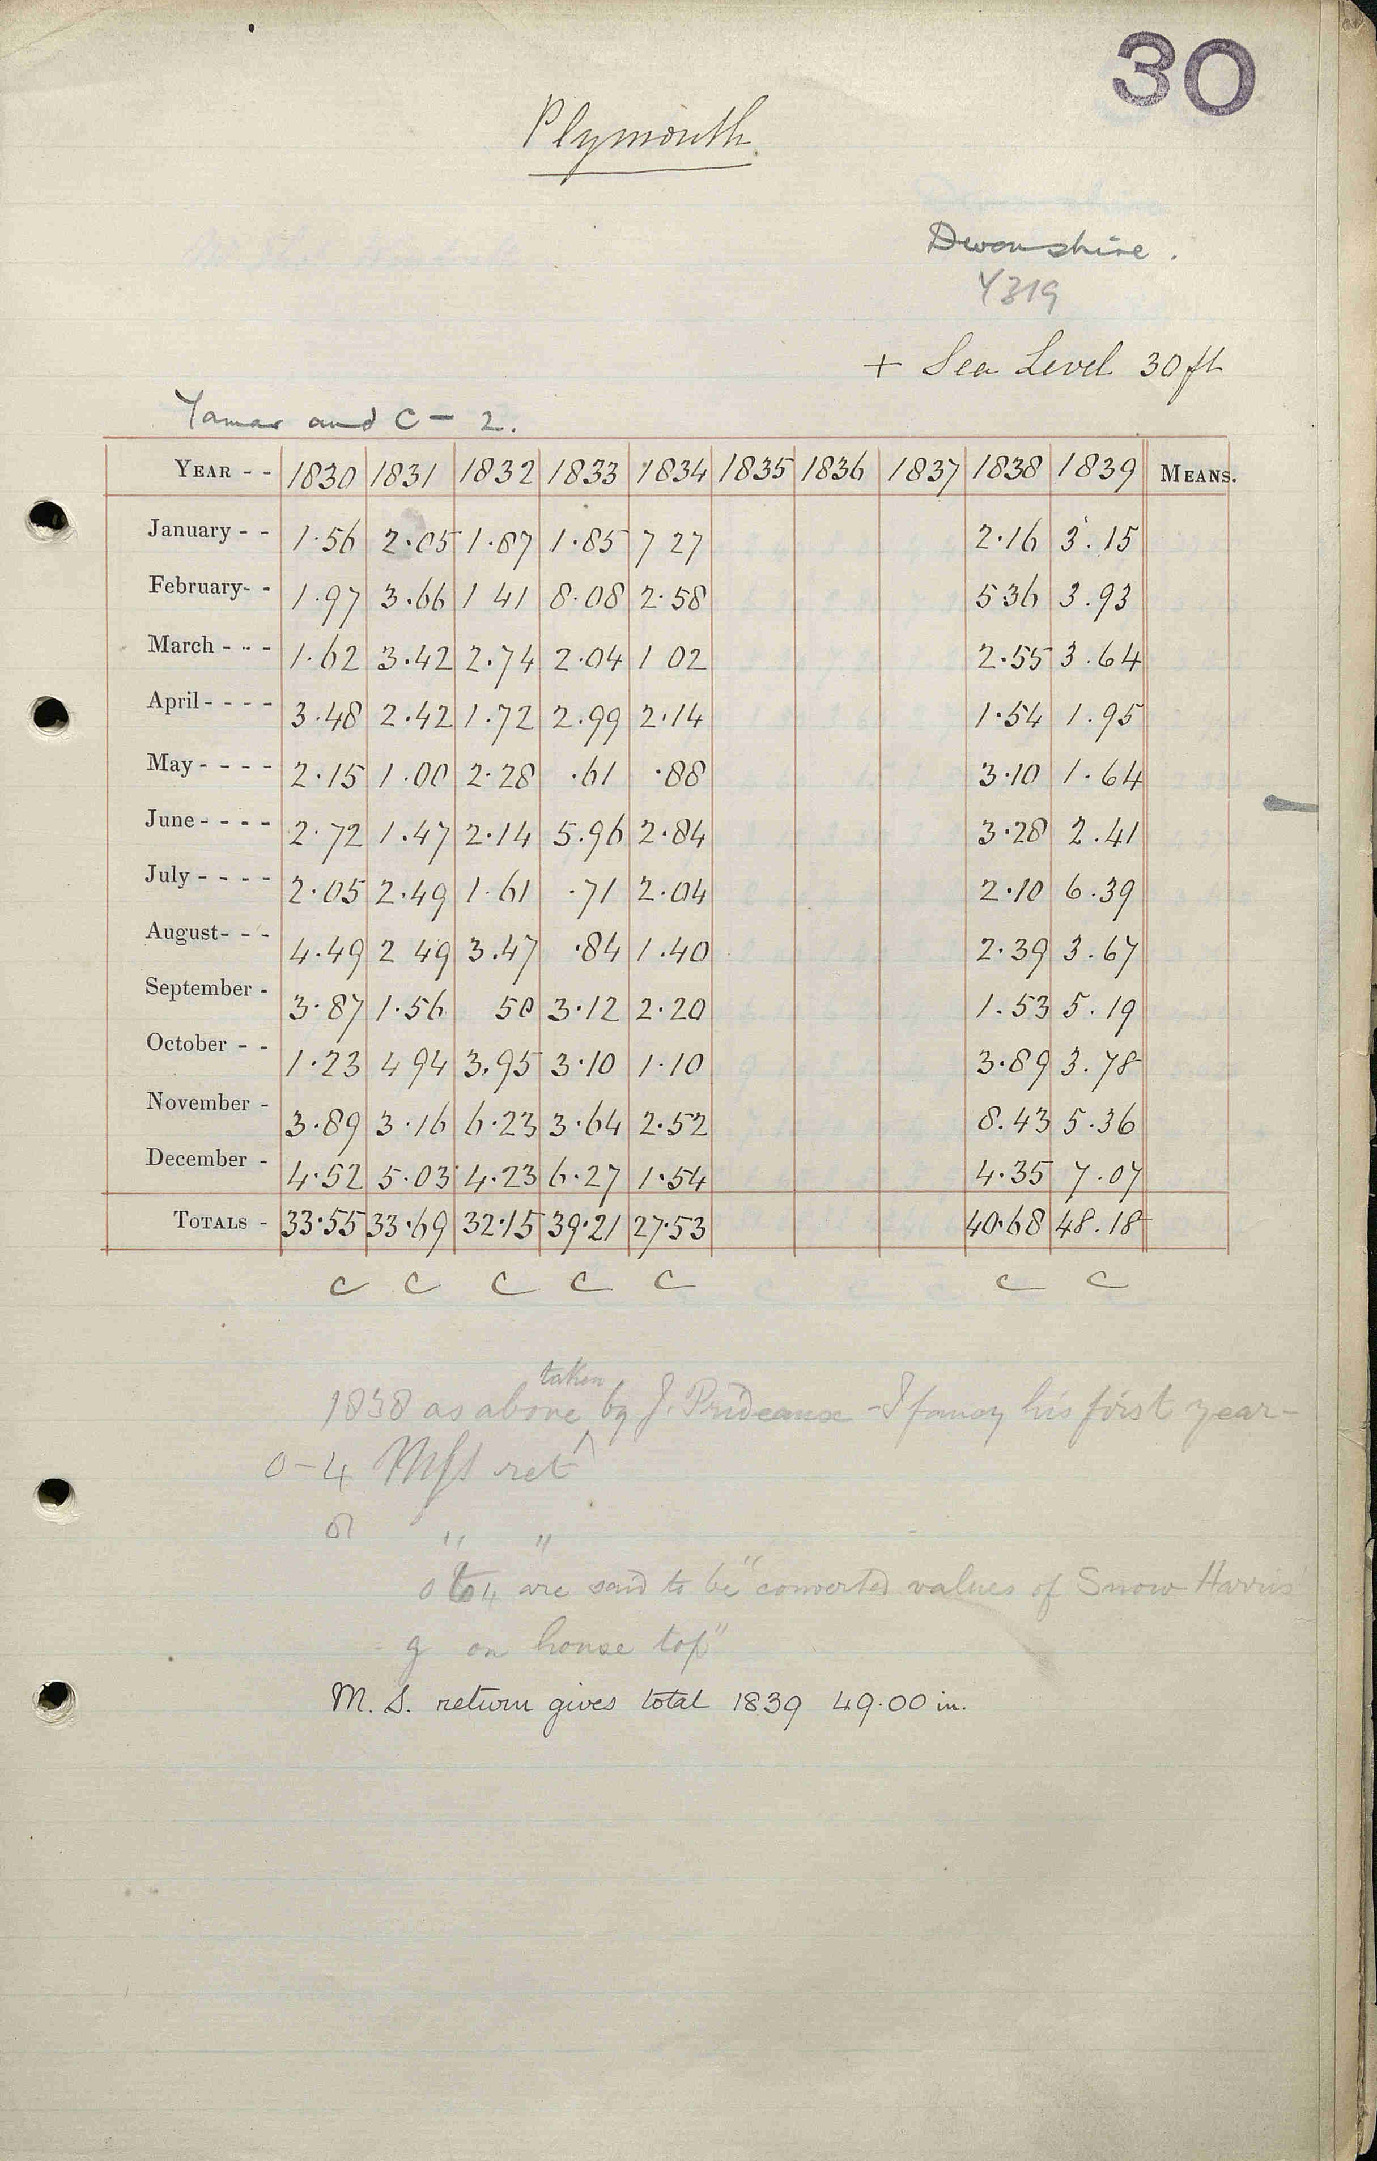 30
Plymouth.
Devonshire.
Y319
+ Sea Level 30 ft
Tamar and C - 2.
YEAR - - 1830 1831 1832 1833 1834 1835 1836 1837 1838 1839 MEANS.
January - - 1.56 2.05 1.87 1.85 7 27 2.16 3.15
February- - 1.97 3.66 1 41 8.08 2.58 5 36 3.93
March - - - 1.62 3.42 2.74 2.04 1 02 2.55 3.64
April - - - - 3.48 2.42 1.72 2.99 2.14 1.54 1.95
May - - - - 2.15 1.00 2.28 .61 .88 3.10 1.64
June - - - - 2.72 1.47 2.14 5.96 2.84 3.28 2.41
July - - - - 2.05 2.49 1.61 .71 2.04 2.10 6.39
August- - - 4.49 2 49 3.47 .84 1.40 2.39 3.67
September - 3.87 1.56 50 3.12 2.20 1.53 5.19
October - - 1.23 4 94 3.95 3.10 1.10 3.89 3.78
November - 3.89 3.16 6.23 3.64 2.52 8.43 5.36
December - 4.52 5.03 4.23 6.27 1.54 4.35 7.07
TOTALS - 33.55 33.69 32.15 39.21 27.53 40.68 48.18
C C C C C C C
1838 as above taken by J. Prideaux - I fancy his first year -
0-4 MSS ret
" "
0 to 4 are said to be "converted values of Snow Harris'
g on house top"
M. S. return gives total 1839 49.00 in.